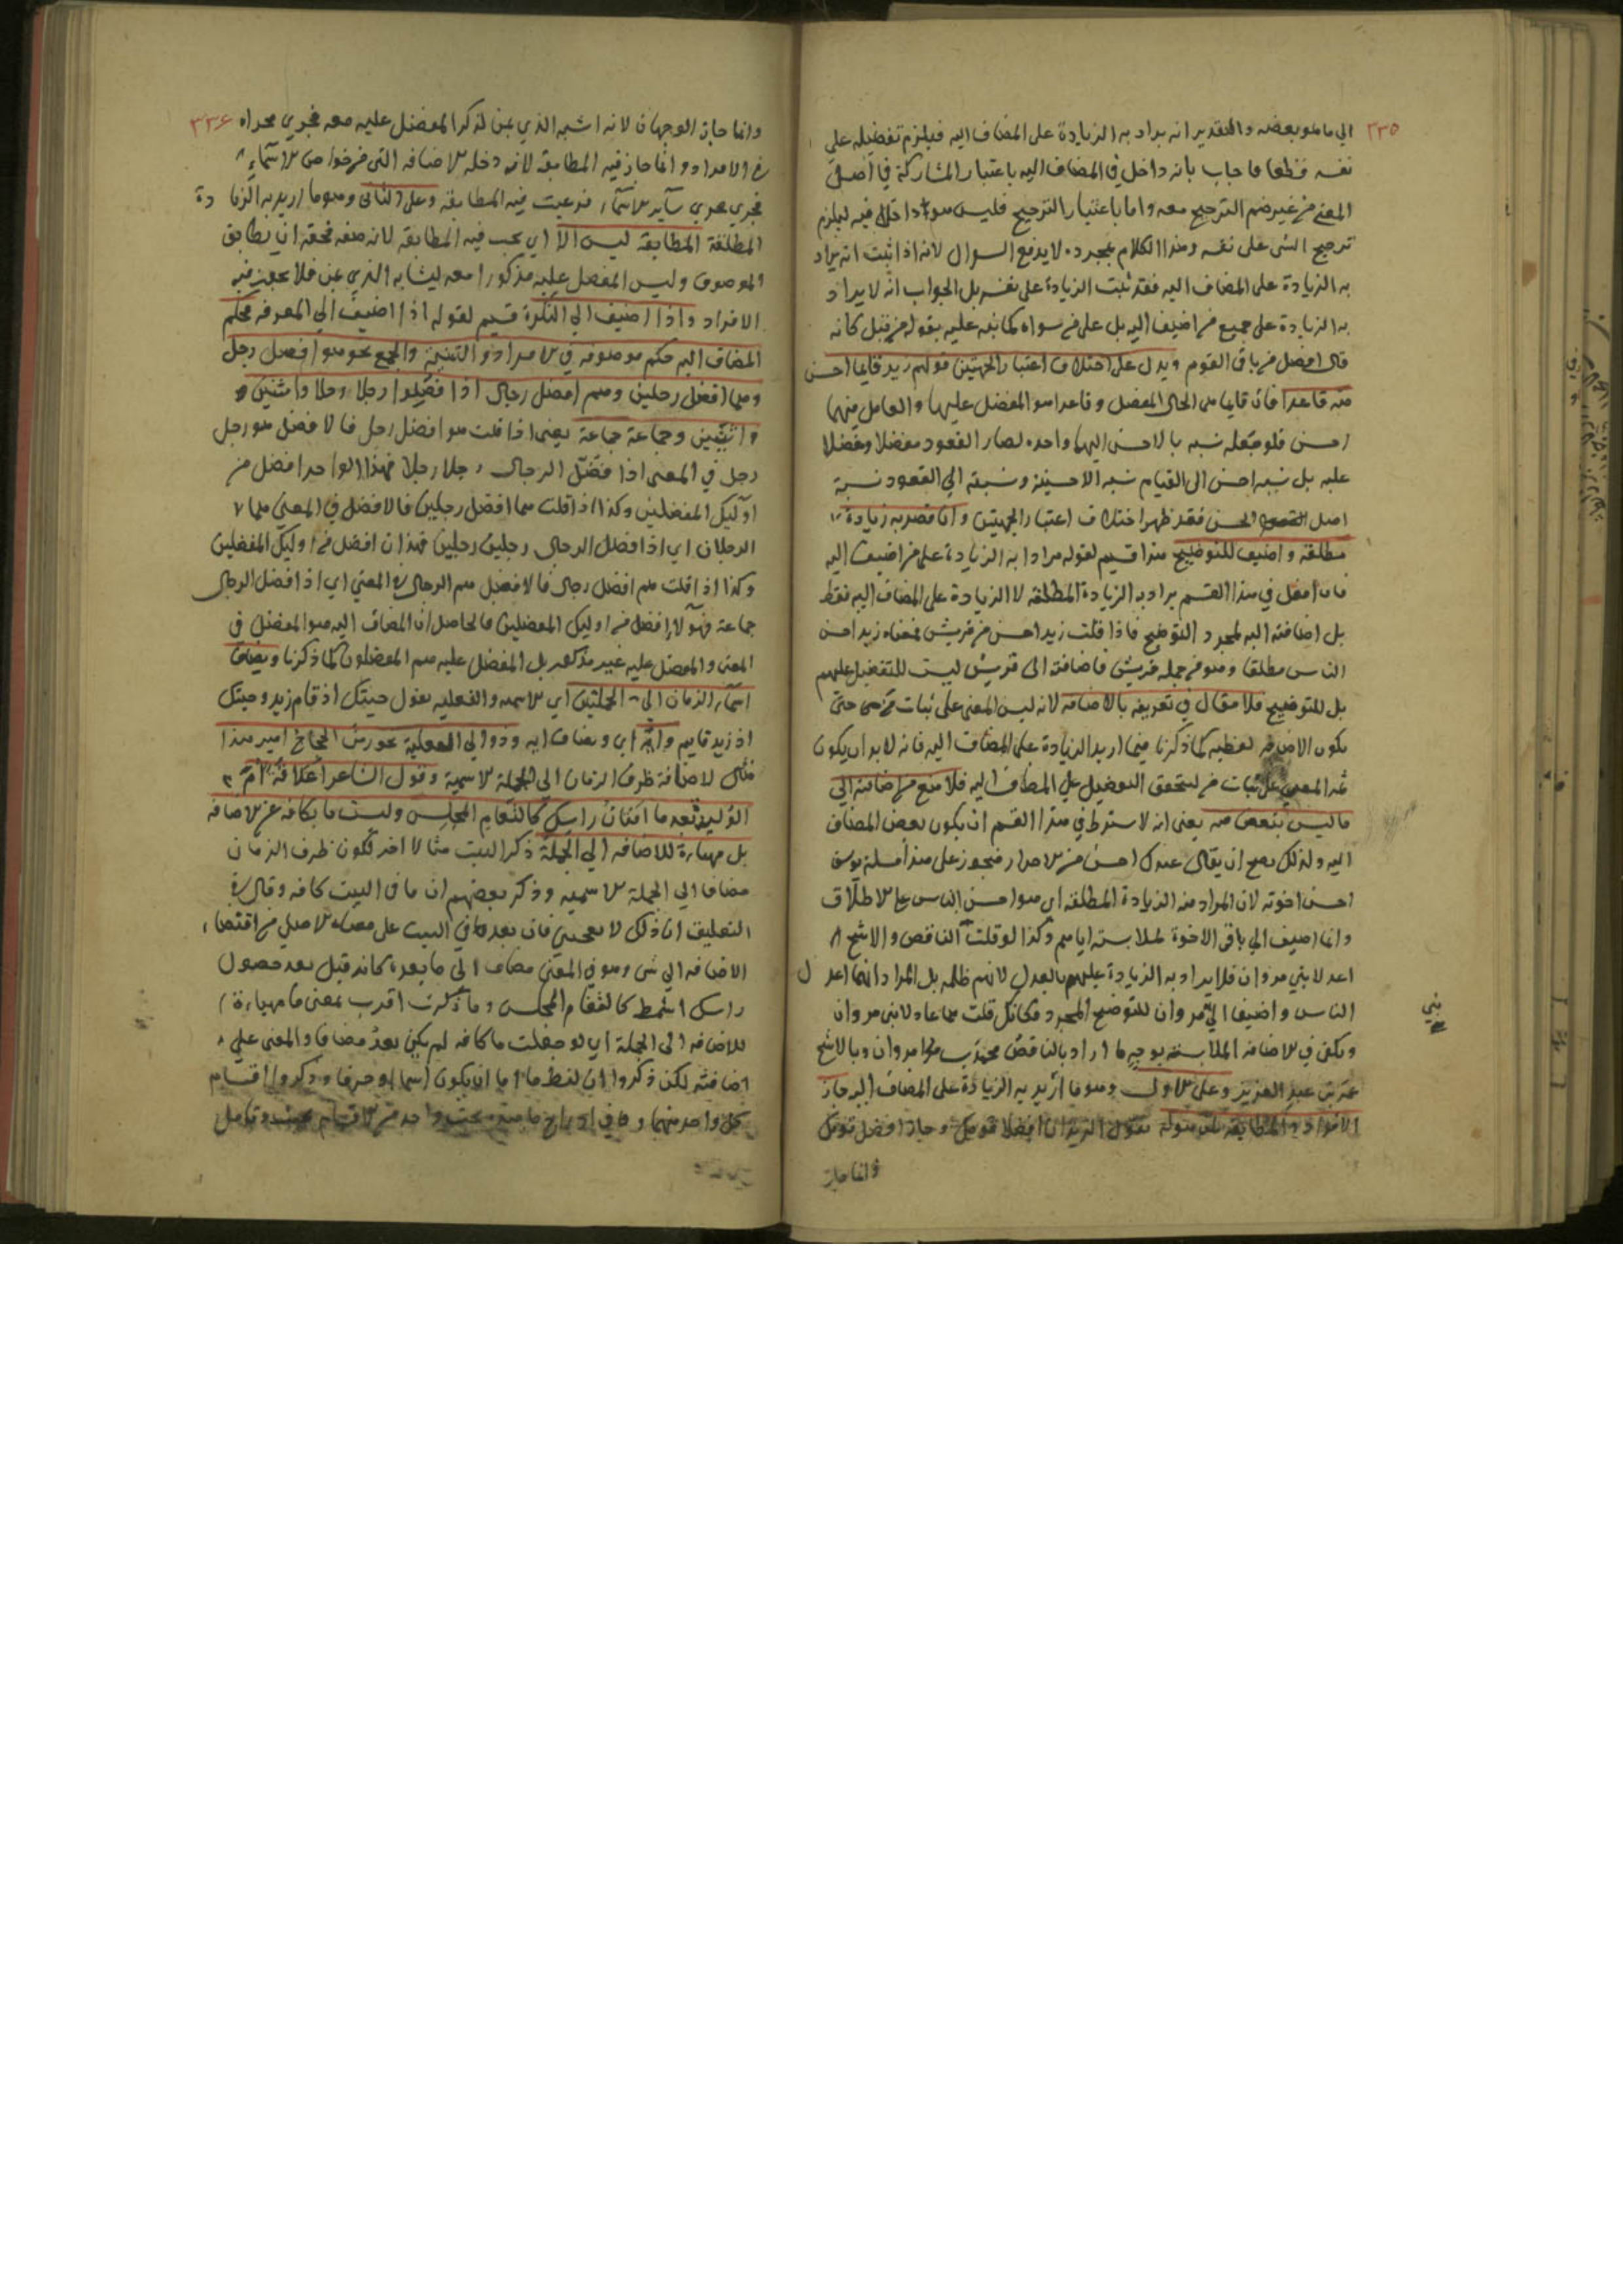 ٢٣٥
الي ما هو بعضه والتقدير انه يراد به الزيادة على المضاف اليه فيلزم تفضيله على
نفسه قطعا فاجاب بانه داخل في المضاف اليه باعتبار المشاركة في اصل
المعنى من غيرهم الترجيح معه واما باعتبار الترجيح فليس هو داخلا فيه ليلزم
ترجيح الشى على نفسه وهذا الكلام بمجرده لا يدفع السوال لانه اذا ثبت انه يراد
به الزيادة على المضاف اليه فقد ثبت الزيادة على نفسه بل الجواب انه لا يراد
به الزيادة على جميع من اضيف اليه بل على من سواه كما نبه عليه بقوله من قبل كانه
قال افضل من باقى القوم ويدل على اختلاف اعتبار الجهتين قولهم زيد قايما احسن
منه قاعدا فان قايما هى الحال المفضل وقاعدا هو المفضل عليها والعامل فيهما
احسن فلو جعله نسبه بالاحسن اليهما واحده لصار القعود مفضلا ومفضلا
عليه بل نسبه احسن الى القيام نسبه الاحسنية ونسبته الي القعود نسبة
اصل الحسن فقد ظهر اختلاف اعتبار الجهتين وان قصد به زيادة
مطلقة واضيف للتوضيح هذا قسيم لقوله مرادا به الزيادة على من اضيف اليه
فان افعل في هذا القسم يراد به الزيادة المطلقه لا الزيادة على المضاف اليه فقط
بل اضافته اليه لمجرد التوضيح فاذا قلت زيد احسن من قريش فمعناه زيد احسن
الناس مطلقا وهو من جمله قريش فاضافته الى قريش ليست للتفضيل عليهم
بل للتوضيح فلا مقال في تعريفه بالاضافه لانه ليس المعنى على ثبات من حتى
يكون الاضافه لفظيه كما ذكرنا فيما اريد الزيادة على المضاف اليه فانه لابد ان يكون
المعنى على ثبات من ليتحقق التفضيل على المضاف اليه فلا منع من اضافته الي
ما ليس ببعض منه يعنى انه لا يشترط في هذا القسم ان يكون بعض المضاف
اليه ولذلك يصح ان يقال عبدك احسن من الاحرار فيجوز على هذا مسئلة يوسف
احسن اخوته لان المراد منه الزيادة المطلقه اى هو احسن الناس على الاطلاق
وانما اضيف الي باقى الاخوة لملابسته اياهم وكذا لو قلت الناقص والاشج
اعدلا بني مروان فلا يراد به الزيادة عليهم بالعدل لانهم ظلمه بل المراد انهما اعدل
الناس واضيفا الى مروان للتوضيح المجرد فكانك قلت هما عادلا بنى مروان
ويكفى في الاضافه الملابسة بوجه ما اراد بالناقص محمد بن مروان وبالاشج
عمر بن عبد العزيز وعلى الاول وهو ما اريد به الزيادة على المضاف اليه جاز
الافراد والمطابقة تقول الزيدان افضلا قومك وجاز افضل قومك
وانما جاز
بني
٢٣٦
وانما جاز الوجهان لانه اشبه الذي بمن لذكر المفضل عليه معه فجري مجراه
في الافراد وانما جاز فيه المطابقة لانه دخله الاضافه التى من خواص الاسماء
فجري مجرى ساير الاسماء فروعيت فيه المطابقة وعلى الثانى وهو ما اريد به الزيادة
المطلقة المطابقة ليس الا اي يجب فيه المطابقه لانه صفه فحقه ان يطابق
الموصوف وليس المفضل عليه مذكورا معه ليشابه الذي بمن فلا يجوز فيه
الافراد واذا اضيف الى النكرة قسيم لقوله اذا اضيف الي المعرفه فحكم
المضاف اليه حكم موصوفه في الافراد والتثنية والجمع نحو هو افضل رجل
وهما افضل رجلين وهم افضل رجال اذا فضلوا رجلا رجلا واثنين
واثنين وجماعة جماعة يعنى اذا قلت هو افضل رجل فالافضل هو رجل
رجل في المعنى اذا فضل الرجال رجلا رجلا فهذا الواحد افضل من
اوليك المفضلين وكذا اذا قلت هما افضل رجلين فالافضل في المعنى هما
الرجلان اي اذا فضل الرجال رجلين رجلين فهذان افضل من اوليك المفضلين
وكذا اذا قلت هم افضل رجال فالافضل هم الرجال في المعنى اي اذا فضل الرجال
جماعة فهولا افضل من اوليك المفضلين فالحاصل ان المضاف اليه هو المفضل في
المعنى والمفضل عليه غير مذكور بل المفضل عليه هم المفضلون كما ذكرنا ويضاف
اسماء الزمان الى الجملتين اي الاسميه والفعليه تقول جيتك اذ قام زيد وجيتك
اذ زيد قايم وآية اي ويضاف آية وذو الي الفعلية نحو زمن الحجاج امير هذا
مثال لاضافة ظرف الزمان الى الجملة الاسمية وقول الشاعر اعلاقة ام
الوليد بعد ما افنان راسك كالثغام المخلس وليست ما بكافه عن الاضافه
بل مهياة للاضافه الي الجملة ذكر البيت مثالا اخر لكون ظرف الزمان
مضافا الي الجملة الاسميه وذكر بعضهم ان ما في البيت كافه وقال في
التعليق ان ذلك لا يعجبني فان بعد ما في البيت على معناه الاصلي من اقتضاء
الاضافه الي شى وهو في المعنى مضاف الى ما بعده كانه قيل بعد حصول
راسك اشمط كالثغام المخلس وما ذكرت اقرب بمعنى ما مهياة
للاضافه الى الجملة اي لو جعلت ما كافه لم يكن بعد مضافا والمعنى على
اضافته لكن ذكروا ان لفظ ما اما ان يكون اسما او حرفا وذكروا اقسام
كل واحد منهما وفي ادراج ما تحت واحد من الاقسام بحث وتامل